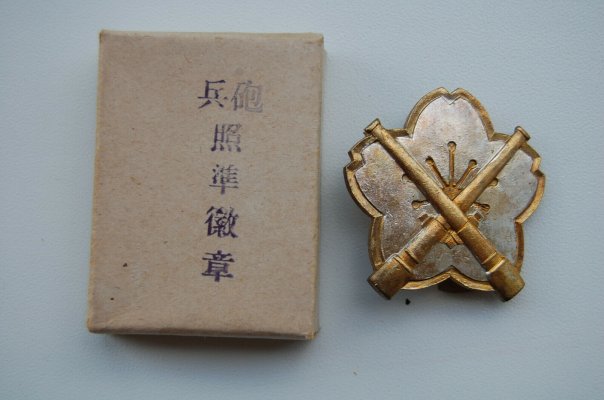 砲兵
照
準
徽
章